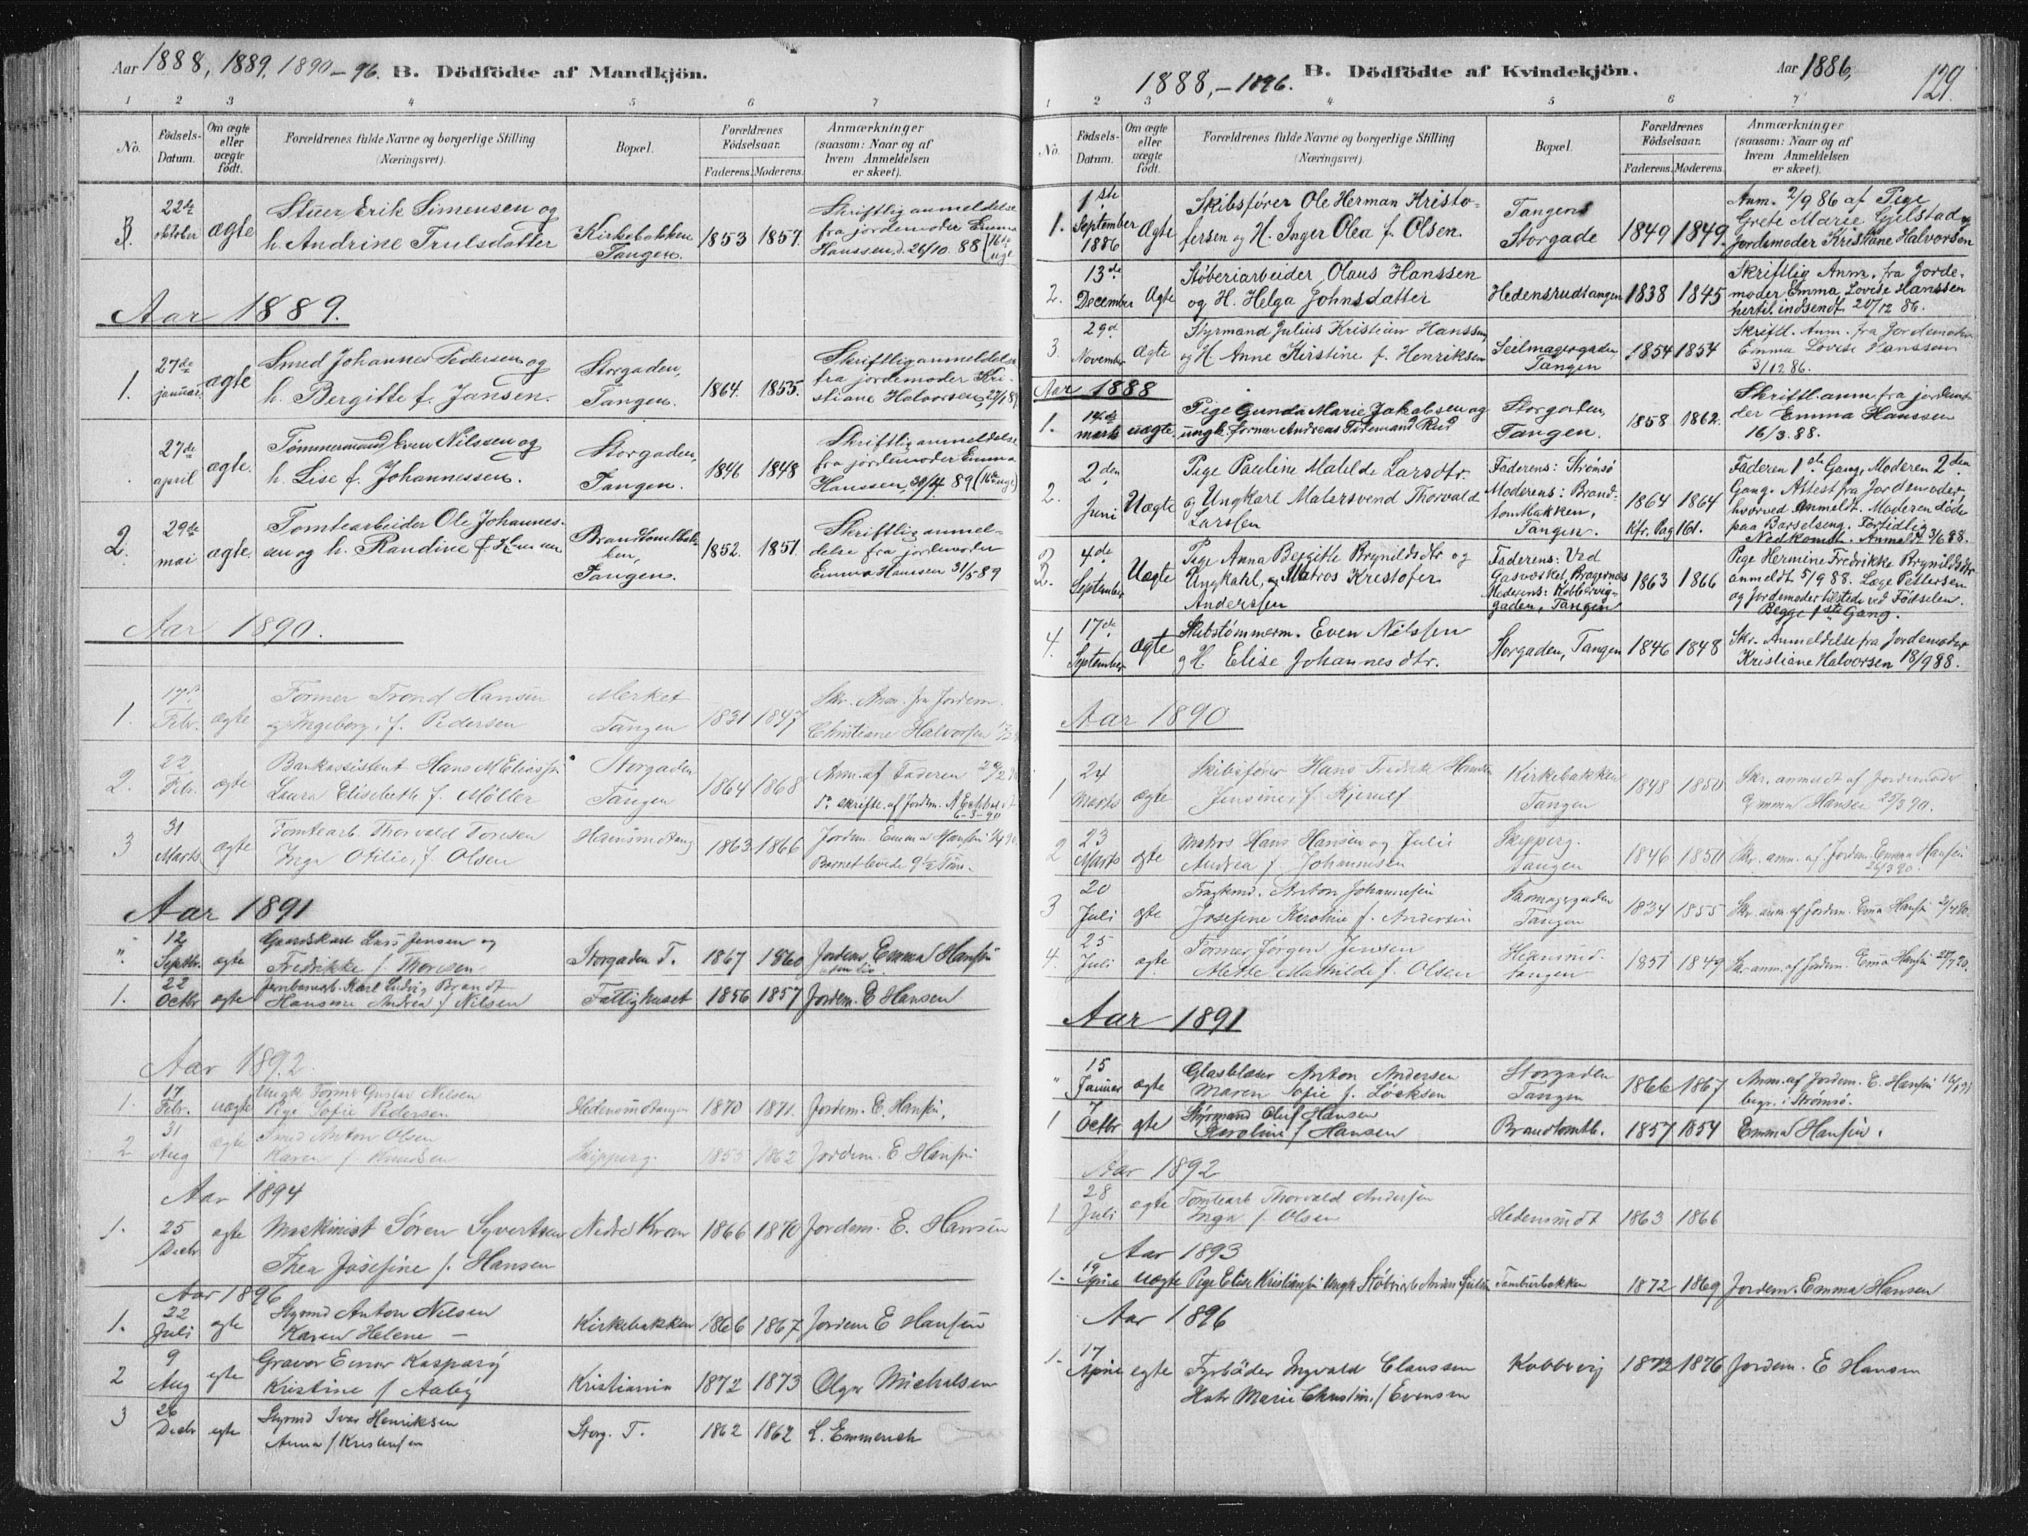 Aar 1888, 1889, 1890-96. B. Dödfödte af Mandkjön.
1 2 3 4 5 6 7
No.
Födsels-Datum.
Om ægte eller uægte födt.
Forældrenes fulde Navne og borgerlige Stilling (Næringsvei).
Bopæl.
Forældrenes Födselsaar.
Faderens. Moderens.
Anmærkninger (saasom: Naar og af hvem Anmeldelsen er skeet).
3. 22de oktober ægte Stuer Erik Simensen og h. Andrine Trulsdatter Kirkebakken Tangen. 1853 1857. Skriftlig anmeldelse fra jordemoder Emma Hanssen, d. 26/10 88
Aar 1889.
1. 27de januar ægte Smed Johannes Pedersen og h. Bergitte f. Jansen. Storgaden, Tangen. 1864. 1855. Skriftlig anmeldelse fra jordemoder Kristiane Halvorsen
27de april ægte. Tømmermand Even Nilssen og h. Lise f. Johannessen. Storgaden, Tangen. 1846 1848 Skriftlig anmeldelse fra jordemoder Emma Hanssen, 30/4 89
2. 29de mai ægte Tomtearbeider Ole Johannessen og h. Randine f. Tangen. 1852. 1851. Skriftlig anmeldelse fra jordemoder Emma Hanssen 31/5 89
Aar 1890.
1. 17de Febr. ægte Former Trond Hansen og Ingeborg, f. Pedersen Merket Tangen 1831 1847 Skr. Anm. fra Jordem. Christiane Halvorsen
2. 22 Febr. ægte Bankassistent Hans M Laura Elisabeth f. Møller Storgaden Tangen 1864 1868 Anm. af Faderen do skriftl. af Jordem. 6-3-90
3 31 Marts ægte Tomtearb Thorvald Toresen Inga Otilie, f. Olsen 1863 1866 Jordem Emma Hansen Barnet levede
Aar 1891
" 12 Septbr. ægte Gaardskarl Lars Jensen og Fredrikke f. Thoresen Storgaden T. 1867 1860 Jordem. Emma Hansen
1. 22 Octbr ægte Karl Ludvig Brandt Hansine Andrea f Nilsen Fattighuset 1856 1857 Jordem. E Hansen
Aar 1892
1. 17 Febr. uægte Ungk Former Gustav Nilsen Pige Sofie Pedersen 1870 1871. Jordem. E. Hansen.
2 31 Aug ægte Smed Anton Olsen Karen f Knudsen Skipperg. 1862 Jordem. E Hansen
Aar 1894
1. 25 Decbr ægte Maskinist Søren Syvertsen Thea Josefine f. Hansen Nedre Kran 1866 1870 Jordem. E. Hansen
Aar 1896
1. 22 Juli ægte Styrmd Anton Nilsen Karen Helene — Kirkebakken 1866 1867 Jordem E Hansen
2 9 Aug ægte Gravør Einar Kaspary Kristine f Aaby Kristiania 1872 1873 Olga Michelsen
3 26 Decbr ægte Styrmd Ivar Henriksen Anna f Kristensen Storg. T. 1862 1862 L. Emmerich
1888,-1896. B. Dödfödte af Kvindekjön. Aar 1886, 129.
1 2 3 4 5 6 7
No.
Födsels-Datum.
Om ægte eller uægte födt.
Forældrenes fulde Navne og borgerlige Stilling (Næringsvei).
Bopæl.
Forældrenes Födselsaar.
Faderens. Moderens.
Anmærkninger (saasom: Naar og af hvem Anmeldelsen er skeet).
1. 1ste September 1886 Ægte Skibsfører Ole Herman Kristofersen og H. Inger Olea f. Olsen. Tangens Storgade 1849 1849. Anm. 2/9 86 af Pige Grete Marie Gjelstad, Jordemoder Kristiane Halvorsen
2. 13de December Ægte Støberiarbeider Olaus Hanssen og H. Helga Johnsdatter Hedensrudtangen 1838 1845 Skriftlig Anm. fra Jordemoder Emma Lovise Hanssen hertil indsendt 20/12 86.
3. 29d November Ægte Styrmand Julius Kristian Hanssen og H. Anne Kirstine f. Henriksen Seilmagergaden Tangen 1854 1854 Skriftl. Anm. fra Jordemoder Emma Lovise Hanssen 3/12 86.
Aar 1888
1. 14de marts uægte Pige Gunda Marie Jakobsen og ungk. former Andreas Tidemand Storgaden, Tangen. 1858 1862. Skriftl. anm. fra jordemoder Emma Hanssen 16/3.88.
2. 2den Juni Uægte Pige Pauline Matilde Larsdtr. og Ungkarl Malersvend Thorvald Larssen Faderens: Strømsø Moderens: Brandtomtbakken, Tangen. 1864 1864 Kfr. Pag 161. Faderen 1de Gang, Moderen 2den Gang. Attest fra Jordemoder hvorved Anmeldt. Moderen døde paa Barselseng. Fortidlig Nedkomst. Anmeldt 3/6 88.
3. 4de September Uægte Pige Anna Bergitte Brynildsdtr og Ungkarl, Matros Kristofer Anderssen Faderens: Ved Gasværket, Bragernæs Moderens: Kobberviggaden, Tangen 1863 1866 Pige Hermine Fredrikke Brynildsdtr anmeldt 5/9 88. Læge Pettersen og Jordemoder tilstede ved Fødselen. Begge 1ste Gang.
4. 17de September Ægte Skibstømmerm. Even Nilssen og H. Elise Johannesdtr. Storgaden, Tangen 1846 1848 Skr. Anmeldelse fra Jordemoder Kristiane Halvorsen 18/9 88.
Aar 1890
1 24 Marts ægte Skibsfører Hans Fredrik Hansen Jensine, f. Kjerulf Kirkebakken Tangen 1848 1850 Skr. anmeldt af Jordemoder Emma Hansen 25/3 90.
2 23 Marts ægte Matros Hans Hansen og Julie Andrea f. Johannesen Skipperg. Tangen 1846 1850 Skr. anm. af Jordem. Emma Hansen 26/3 90.
3 20 Juli ægte Anton Johannesen Josefine Karoline f. Andersen Skomagergaden Tangen 1834 1855 Skr. anm. af Jordem. Emma Hansen
4 25 Juli ægte Former Jørgen Jensen Alette Mathilde f. Olsen 1851 1849 Skr. anm. af Jordem. Emma Hansen
Aar 1891
" 15 Januar ægte Glasblæser Anton Andersen Maren Sofie f. Storgaden Tangen 1866 1867 Anm. af Jordem. E. Hansen begr. i Strømsø.
1 7 Octbr ægte Styrmand Oluf Hansen Karoline f Hansen Brandtomtb. 1857 1854 Emma Hansen.
Aar 1892
1 28 Juli ægte Tomtearb Thorvald Andersen Inga f. Olsen 1863 1866
Aar 1893
1. 19 April Uægte Pige Elise Kristiansen Ungk 1872 1869 Jordem. Emma Hansen
Aar 1896
1. 17 April ægte Fyrbøder Ingvald Claussen Marie f Evensen Kobbervig 1872 1876 Jordem. E Hansen